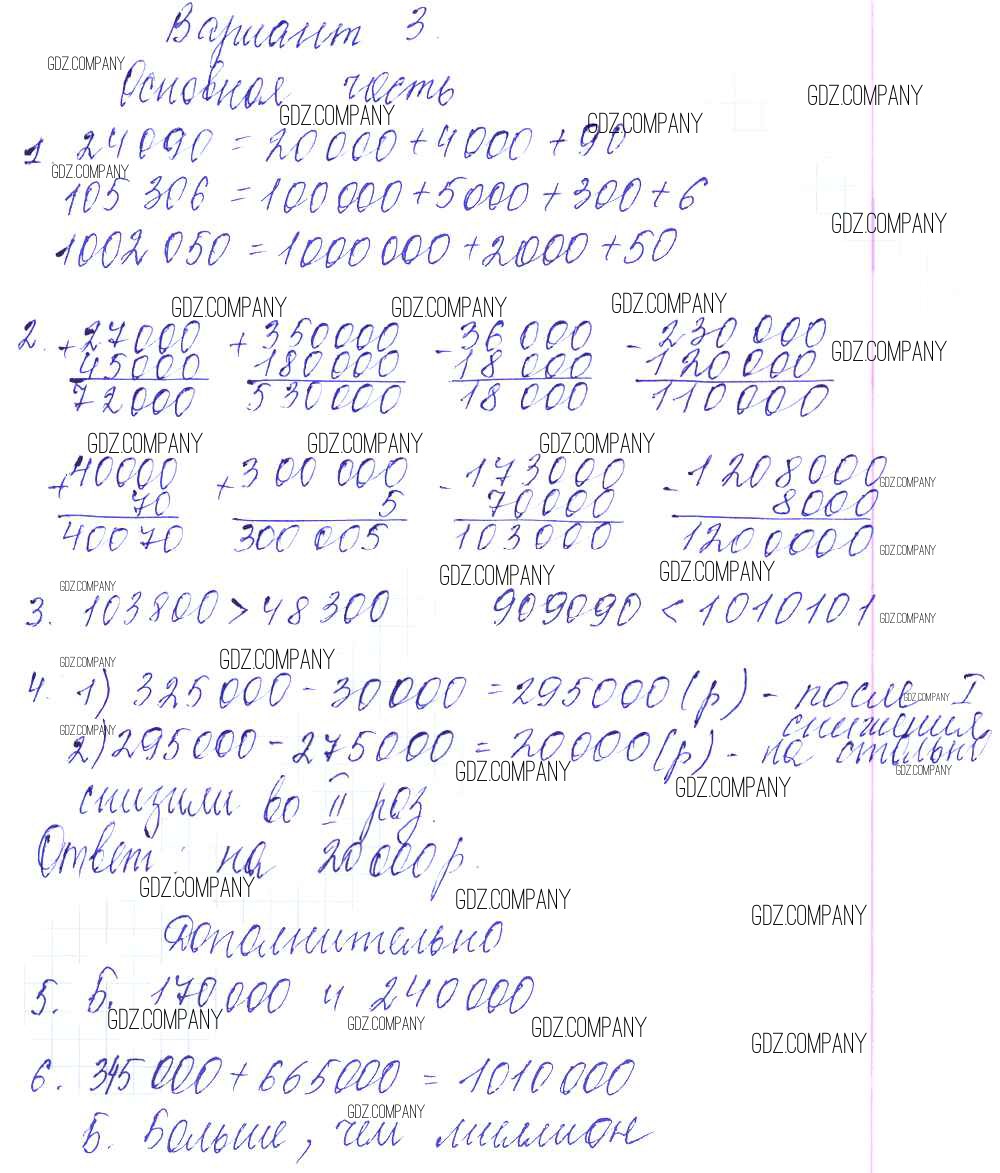 Вариант 3.
GDZ.COMPANY
Основная часть
GDZ.COMPANY
GDZ.COMPANY GDZ.COMPANY
1. 24090 = 20000 + 4000 + 90
GDZ.COMPANY
105 306 = 100000 + 5000 + 300 + 6
GDZ.COMPANY
1002 050 = 1000 000 + 2000 + 50
GDZ.COMPANY GDZ.COMPANY GDZ.COMPANY
2. + 27000 + 350000 - 36 000 - 230 000
GDZ.COMPANY
45000 180000 18 000 120 000
72000 530000 18 000 110000
GDZ.COMPANY GDZ.COMPANY GDZ.COMPANY
+ 40000 + 300 000 - 173000 - 1208000
GDZ.COMPANY
70 5 70000 8000
40070 300 005 103000 1200000
GDZ.COMPANY
GDZ.COMPANY GDZ.COMPANY GDZ.COMPANY
3. 103800 > 48300 909090 < 1010101
GDZ.COMPANY
GDZ.COMPANY GDZ.COMPANY
4. 1) 325000 - 30000 = 295000 (р) - после I
GDZ.COMPANY
снижения
GDZ.COMPANY
2) 295000 - 275000 = 20000 (р) - на столько
GDZ.COMPANY GDZ.COMPANY GDZ.COMPANY
снизили во II раз.
Ответ: на 20000 р.
GDZ.COMPANY GDZ.COMPANY GDZ.COMPANY
Дополнительно
5. Б. 170 000 и 240000
GDZ.COMPANY GDZ.COMPANY GDZ.COMPANY GDZ.COMPANY
6. 345 000 + 665000 = 1010 000
GDZ.COMPANY
Б. Больше, чем миллион